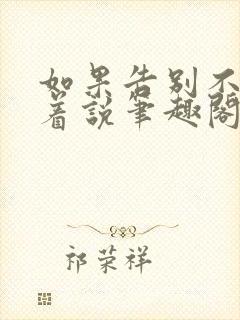 如果告别不
着说笔趣阁
祁荣祥